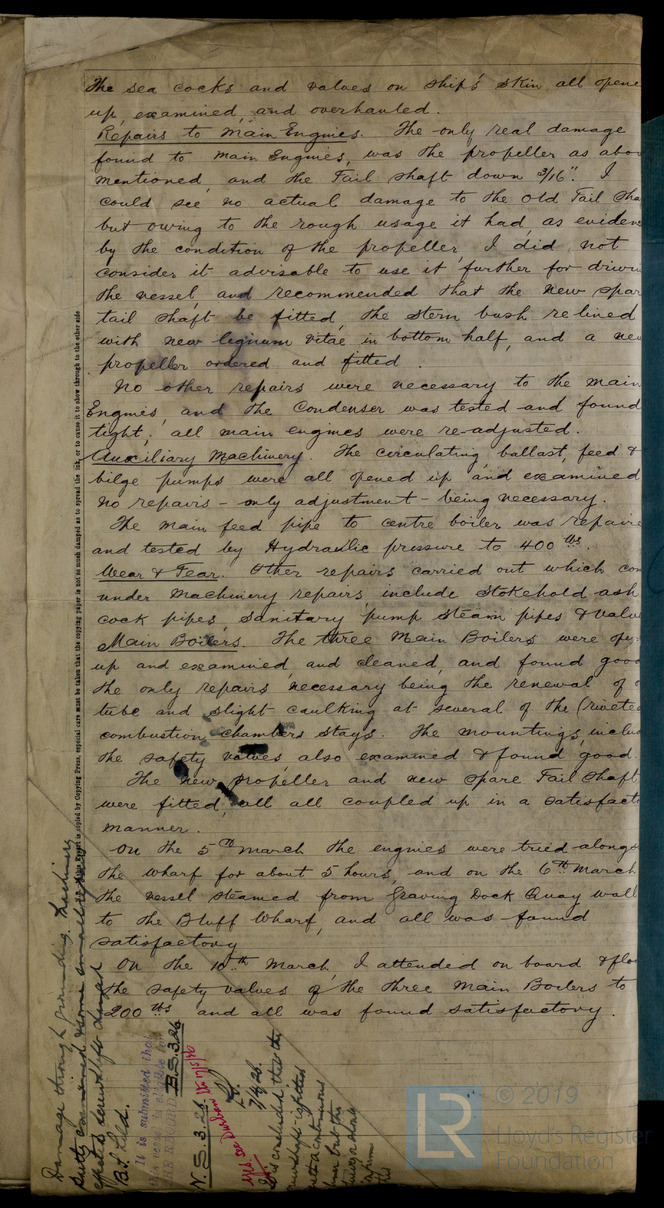 The sea cocks and valves on ship's skin all opene
up, examined and overhauled.
Repairs to Main Engines. The only real damage
found to main Engines, was the propeller as abov
mentioned, and the Tail shaft down 3/16". I
could see no actual damage to the old Tail sha
but owing to the rough usage it had, as eviden
by the condition of the propeller, I did not
consider it advisable to use it further for drivin
the vessel, and recommended that the new spar
tail shaft be fitted, the stern bush relined
with new lignum vitae in bottom half, and a new
propeller ordered and fitted.
No other repairs were necessary to the main
Engines and the Condenser was tested and found
tight, all main engines were re-adjusted.
Auxiliary Machinery. The circulating, ballast, feed &
bilge pumps were all opened up and examined
no repairs - only adjustment - being necessary.
The main feed pipe to centre boiler was repaire
and tested by Hydraulic pressure to 400 lbs.
Wear & Tear. Other repairs carried out which com
under Machinery repairs, include Stokehold ash
cock pipes, sanitary pump steam pipes & valv
Main Boilers. The three Main Boilers were op
up and examined, and cleaned, and found good
the only repairs necessary being the renewal of
tube and slight caulking at several of the (rivete
combustion chambers stays. The mountings, inclu
the safety valves, also examined & found good.
The new propeller and new spare Tail shaft
were fitted, all all coupled up in a satisfact
manner.
On the 5th March the engines were tried alongs
the wharf for about 5 hours, and on the 6th March
the vessel steamed from Graving Dock Quay wall
to the Bluff Wharf, and all was found
satisfactory
On the 10th March, I attended on board & flo
the safety valves of the three Main Boilers to
200 lbs and all was found satisfactory.
is copied by Copying Press, especial care must be taken that the copying paper is not so much damped as to spread the ink, or to cause it to show through to the other side
Damage through grounding. Machinery
partly examined & some small repairs
B.S. held.
It is submitted that
THE RECORD
B.S. 3.26
N.S. 3.26
7/4/26.
It is concluded that the
© 2019
LR
Lloyd's Register
Foundation